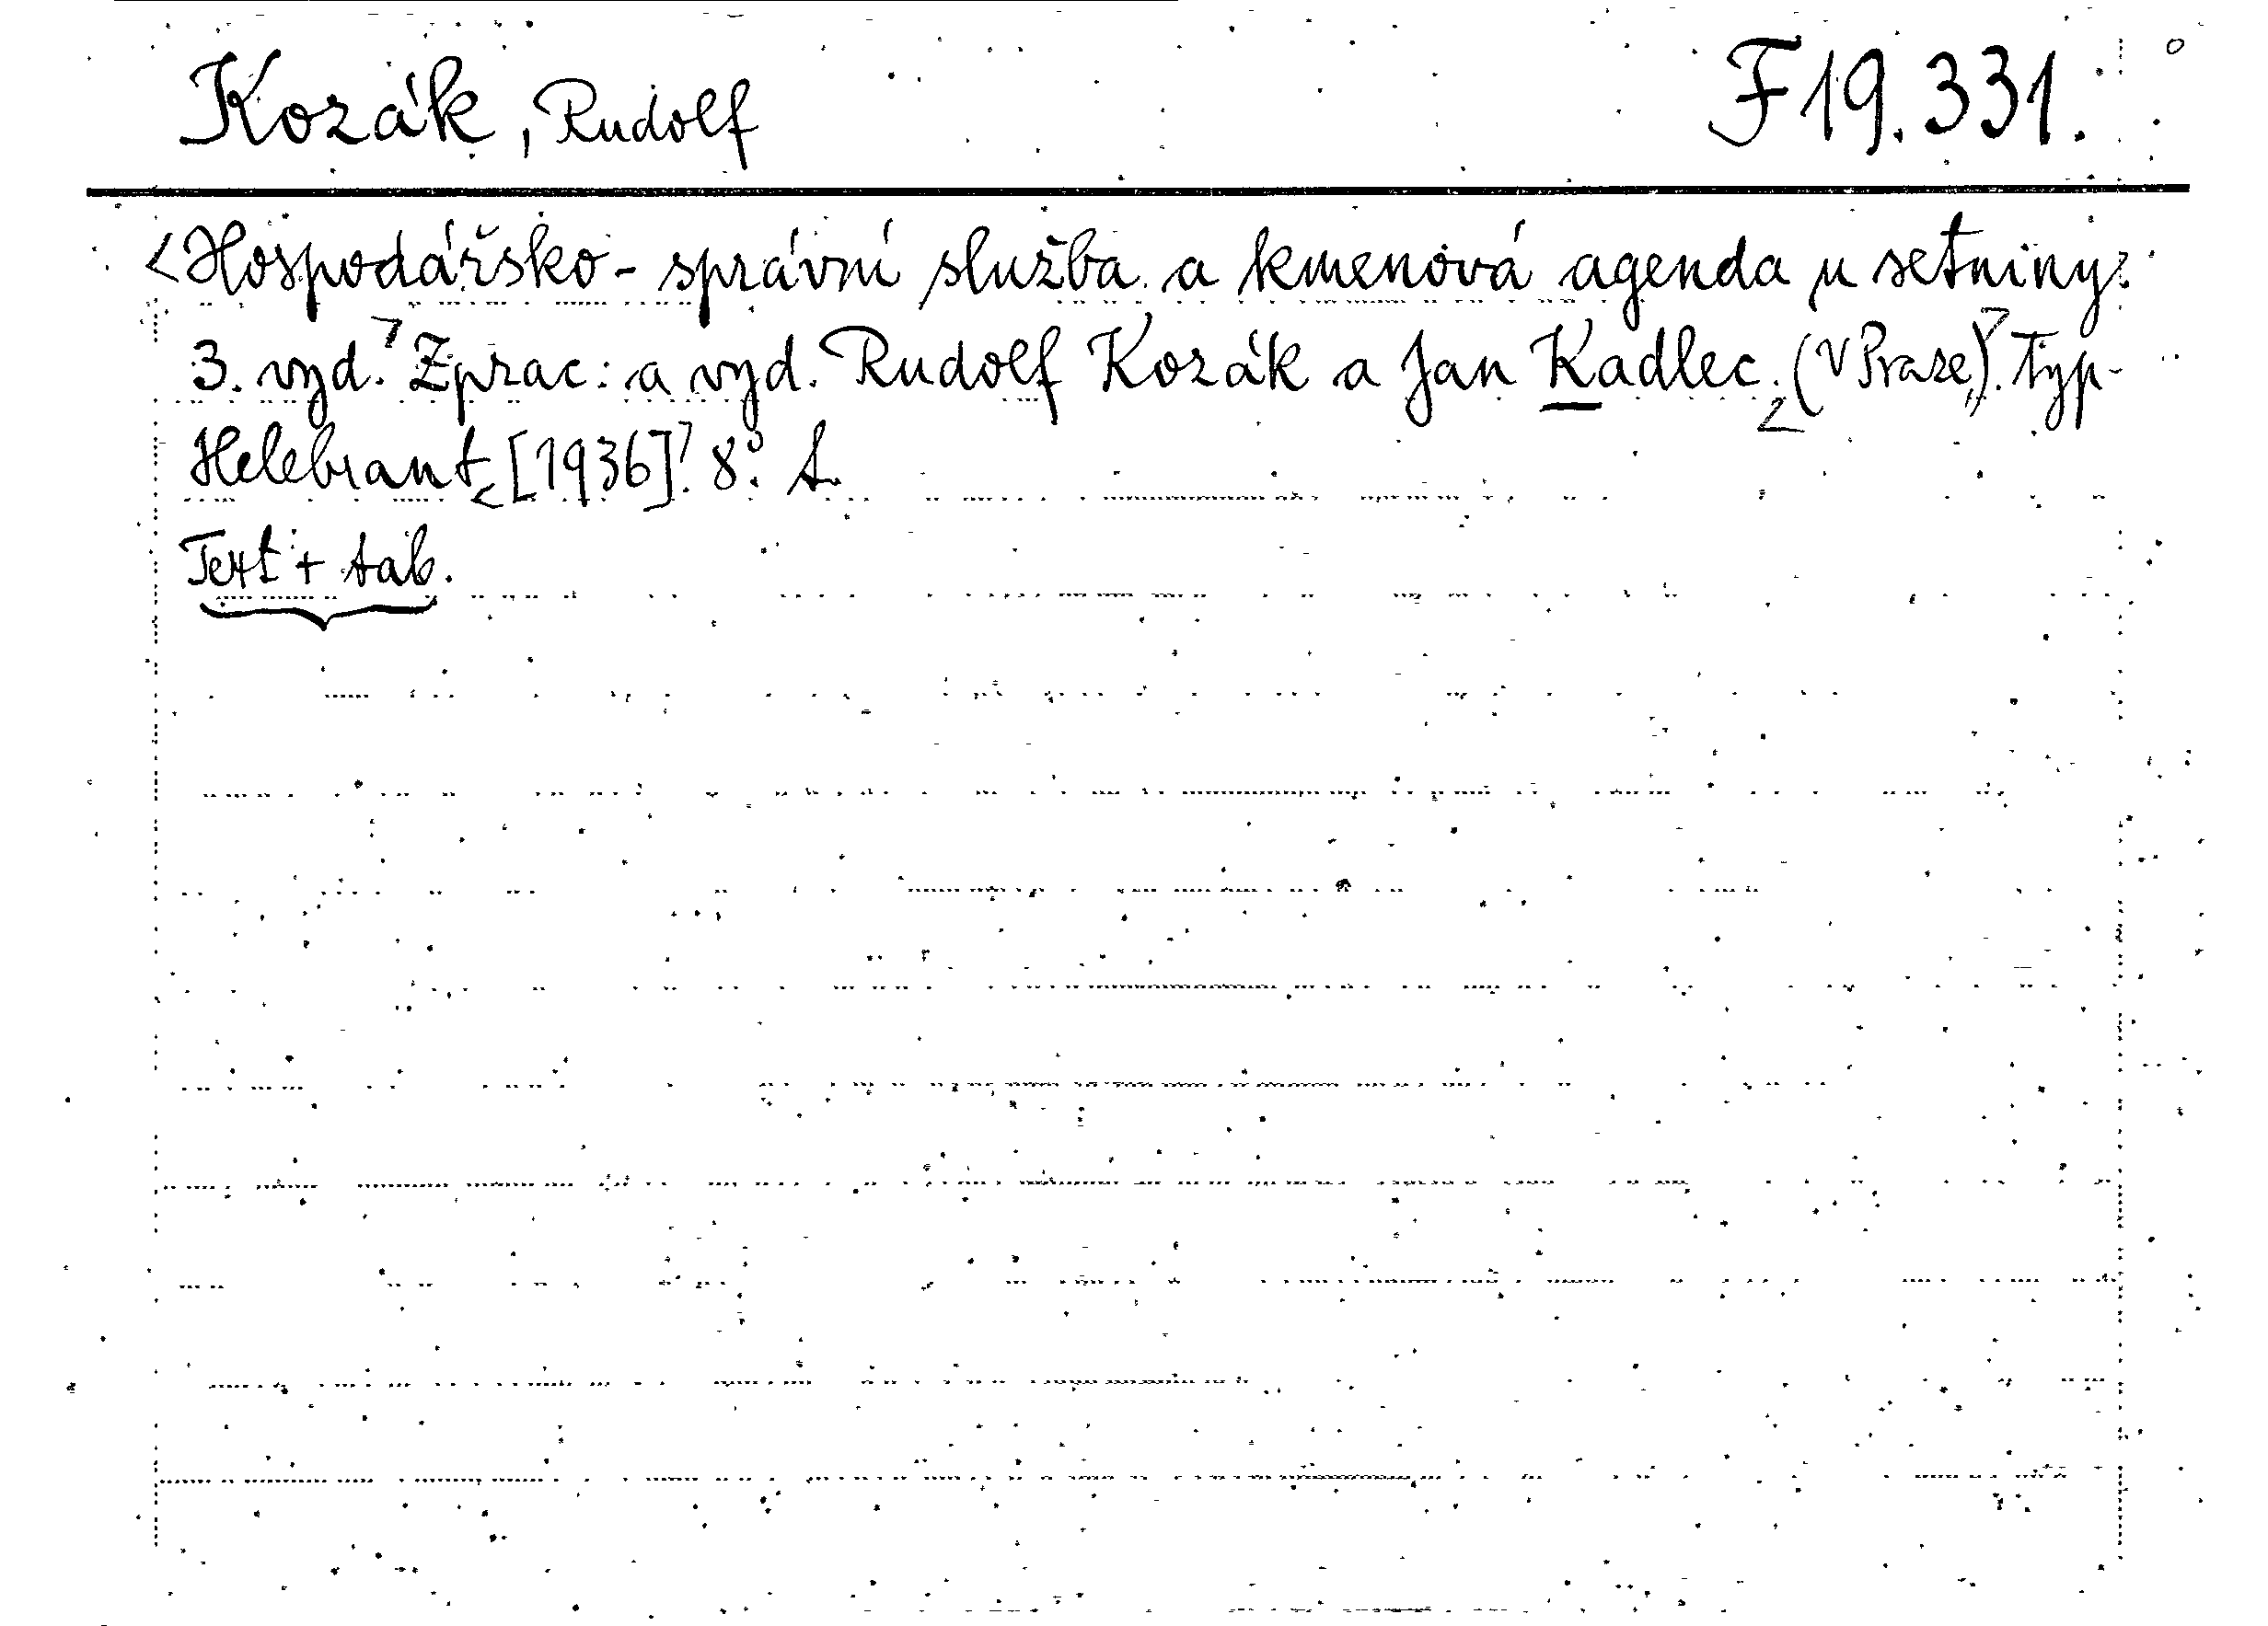 Kozák, Rudolf F 19.331.
<Hospodářsko-správní služba a kmenová agenda u setniny.
3. vyd.> Zprac. a vyd. Rudolf Kozák a Jan Kadlec. <(V Praze)>. Typ-
Helebrant <[1936]>. 8°.
Text + tab.